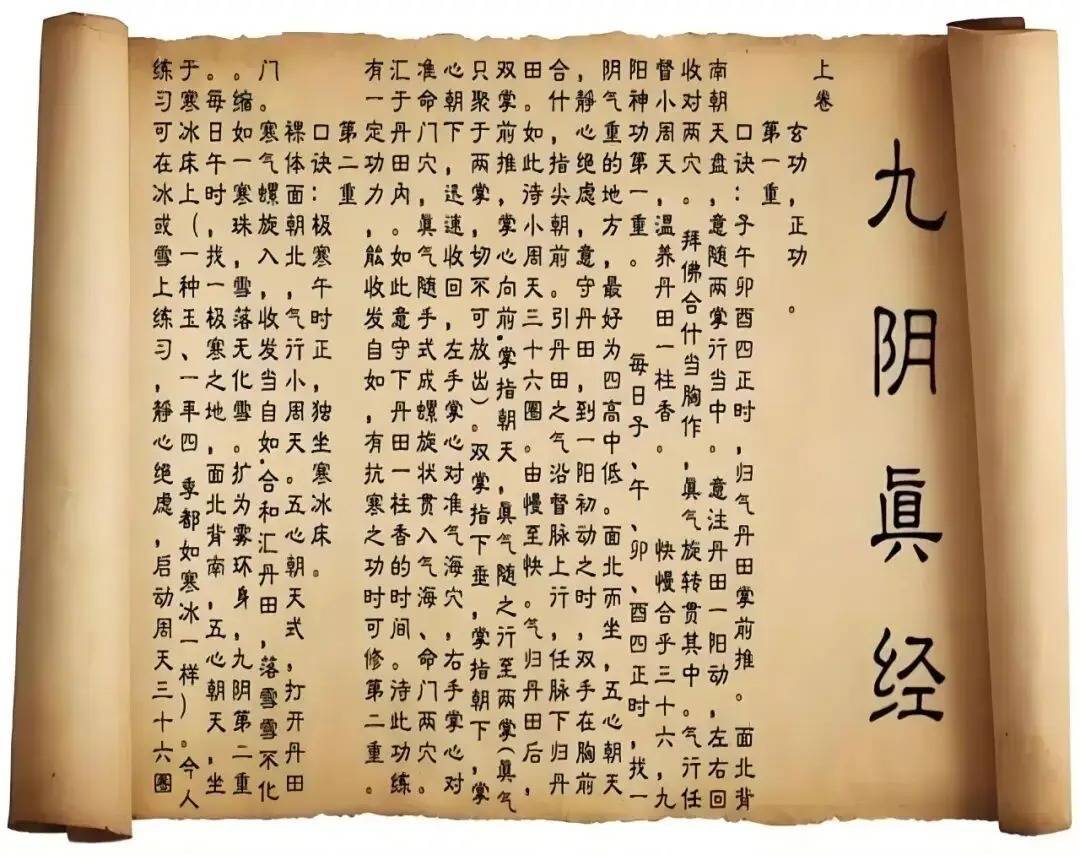 九阴眞经
上卷
玄功，正功。
第一重
口诀：子午卯酉四正时，归气丹田掌前推。面北背
南朝天盘，意随两掌行当中。意注丹田一阳动，左右回
收对两穴。拜佛合什当胸作，眞气旋转贯其中。气行任
督小周天，温养丹田一柱香。快慢合乎三十六，九
阳神功第一重。每日子、午、卯、酉四正时，找一
阴气重的地方，最好为四高中低。面北而坐，五心朝天
，静心绝虑，意守丹田，到一阳初动之时，双手在胸前
合什，指尖朝前。引丹田之气沿督脉上行，任脉下归丹
田。如此诗小周天三十六圈。由慢至快。气归丹田后，
双掌前推，掌心向前.掌指朝天，眞气随之行至两掌（眞气
只聚于两掌，切不可放出）。双掌指下垂，掌指朝下，掌
心朝下，迅速收回，左手掌心对准气海穴，右手掌心对
准命门穴，眞气随手式成螺旋状贯入气海、命门两穴。
汇于丹田内。如此意守下丹田一柱香的时间。诗此功练
有一定功力，能收发自如，有抗寒之功时可修第二重。
第二重
口诀：极寒午时正，独坐寒冰床。
裸体面朝北，气行小周天。五心朝天式，打开丹田
门。寒气螺旋入，收发当自如.合和汇丹田，落雪雪不化
。缩如一寒珠，雪落无化雪。扩为雾环身，九阴第二重
。每日午时，找一极寒之地，面北背南，五心朝天，坐
于寒冰床上（一种玉、一年四季都如寒冰一样）。今人
练习可在冰或雪上练习，静心绝虑，启动周天三十六圈